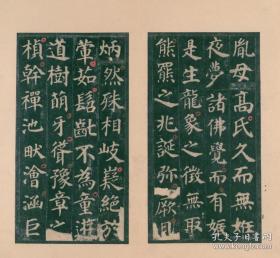 胤母高氏久而無姙
夜夢諸佛覺而有娠
是生龍象之徵無取
熊羆之兆誕弥厥月
炳然殊相岐嶷絕於
葷茹髫齔不為童遊
道樹萌牙聳豫章之
楨幹禪池畎澮涵巨